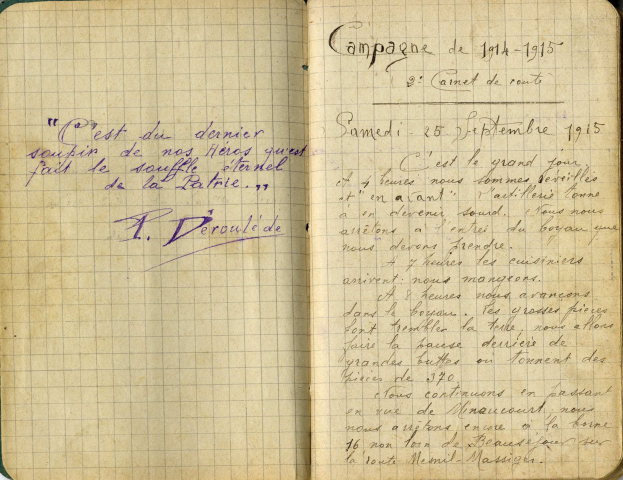 "C'est du dernier
soupir de nos Héros qu'est
fait le souffle éternel
de la Patrie.„
P. Déroulède
Campagne de 1914-1915
2e Carnet de route
Samedi - 25 Septembre 1915
C'est le grand jour.
A 4 heures nous sommes réveillés
et "en avant". L'artillerie tonne
à en devenir sourd. Nous nous
arrêtons à l'entrée du boyau que
nous devons prendre.
A 7 heures les cuisiniers
arrivent: nous mangeons.
A 8 heures nous avançons
dans le boyau. Les grosses pièces
font trembler la terre, nous allons
faire la pause derrière de
grandes buttes où tonnent des
pièces de 370.
Nous continuons en passant
en vue de Minaucourt, nous
nous arrêtons encore à la borne
16 non loin de Beauséjour sur
la route Mesnil-Massiges.